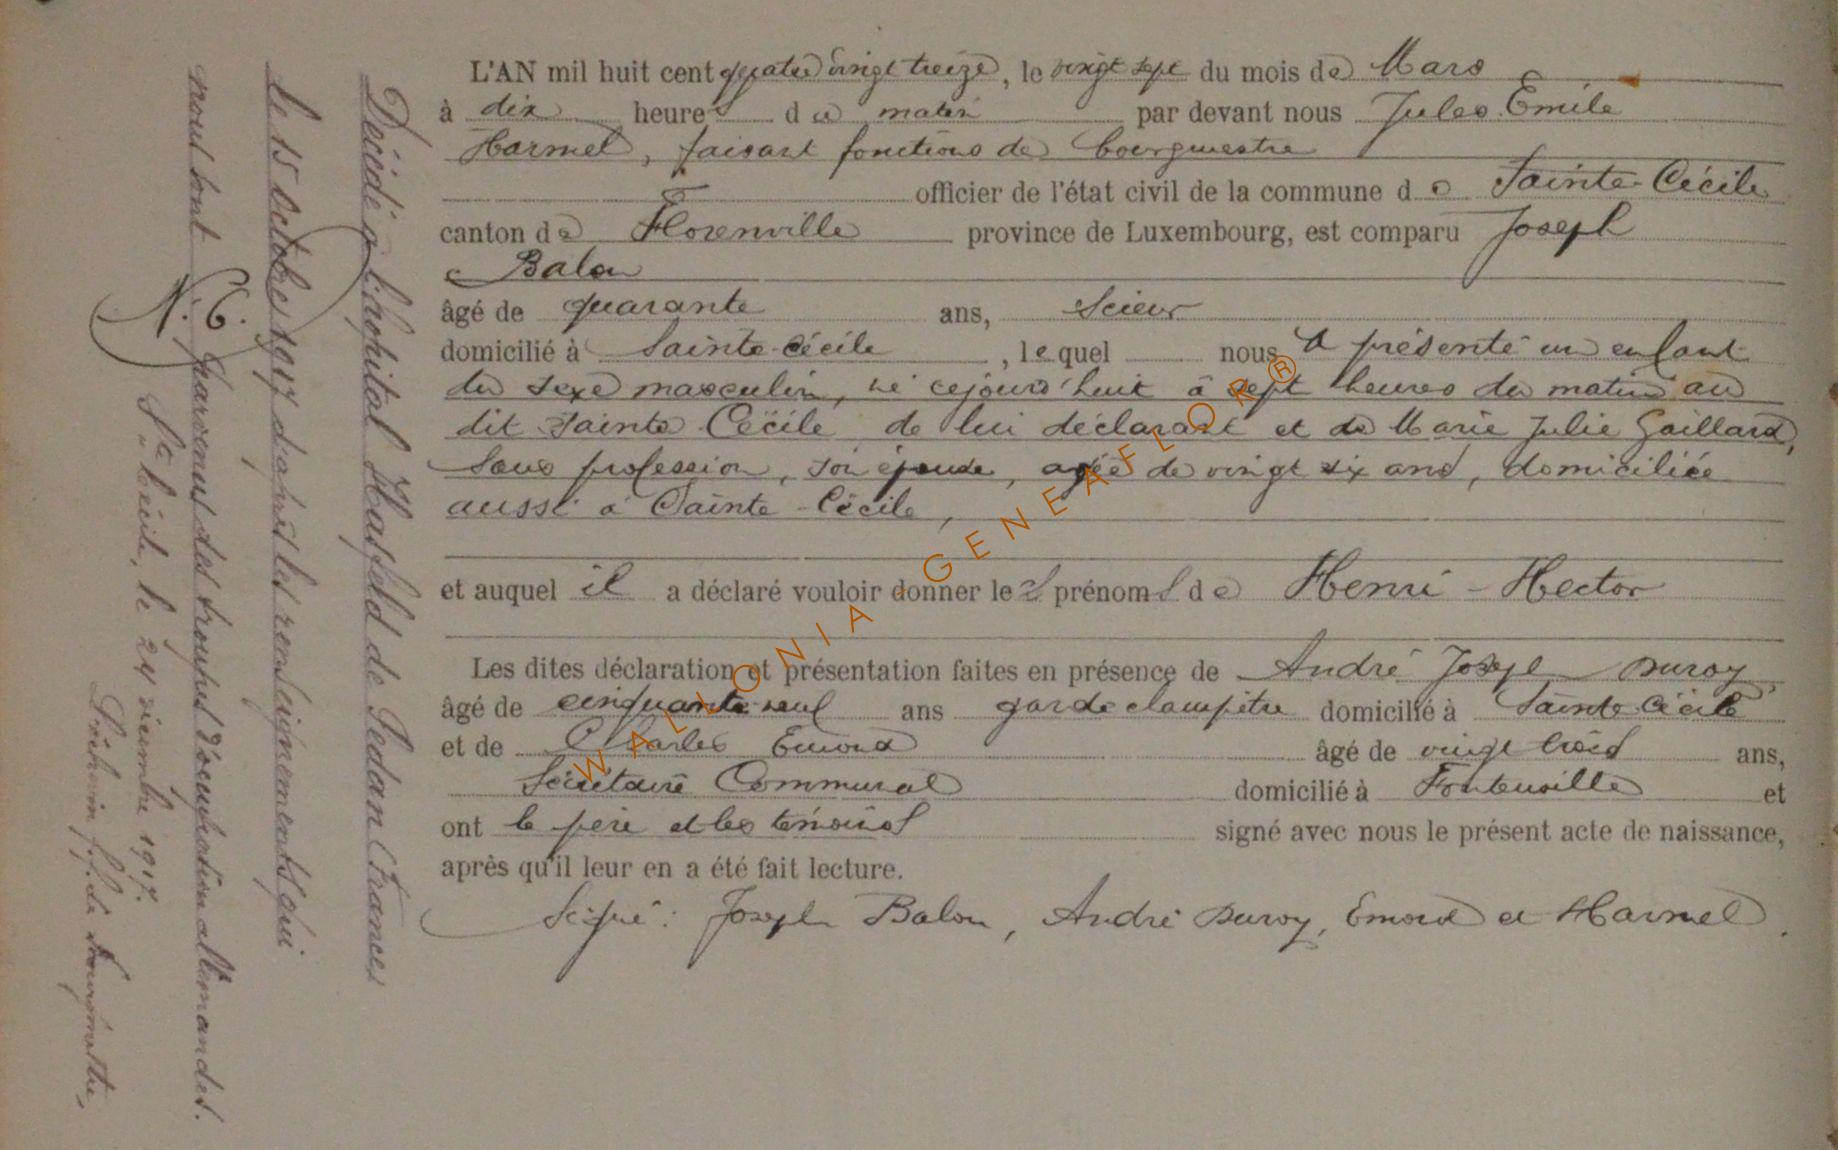 L'AN mil huit cent quatre vingt treize, le vingt sept du mois de Mars
à dix heures du matin par devant nous Jules Emile
Harmel, faisant fonctions de bourgmestre
officier de l'état civil de la commune de Sainte-Cécile
canton de Florenville province de Luxembourg, est comparu Joseph
Balon
âgé de quarante ans, Scieur
domicilié à Sainte-Cécile, lequel nous a présenté un enfant
du sexe masculin, né cejourd'huit à sept heures du matin au
dit Sainte Cécile de lui déclarant et de Marie Julie Gaillard,
sans profession, son épouse, agée de vingt six ans, domiciliée
aussi à Sainte-Cécile,
et auquel il a déclaré vouloir donner les prénoms de Henri-Hector
Les dites déclaration et présentation faites en présence de André Joseph Duroy,
âgé de cinquante neuf ans garde champêtre domicilié à Sainte Cécile
et de Charles Emond âgé de vingt trois ans,
Secrétaire Communal domicilié à Fontenoille et
ont le père et les témoins signé avec nous le présent acte de naissance,
après qu'il leur en a été fait lecture.
Signé: Joseph Balon, André Duroy, Emond et Harmel.
Décédé à l'hopital Hasfeld de Sedan (France)
le 15 octobre 1917 d'après les renseignements qui
nous sont parvenus des troupes d'occupation allemandes.
N. C.
Ste Cécile, le 24 1917.
L'échevin f.f. de bourgmestre,
WALLONIA - GENEAFLOR®